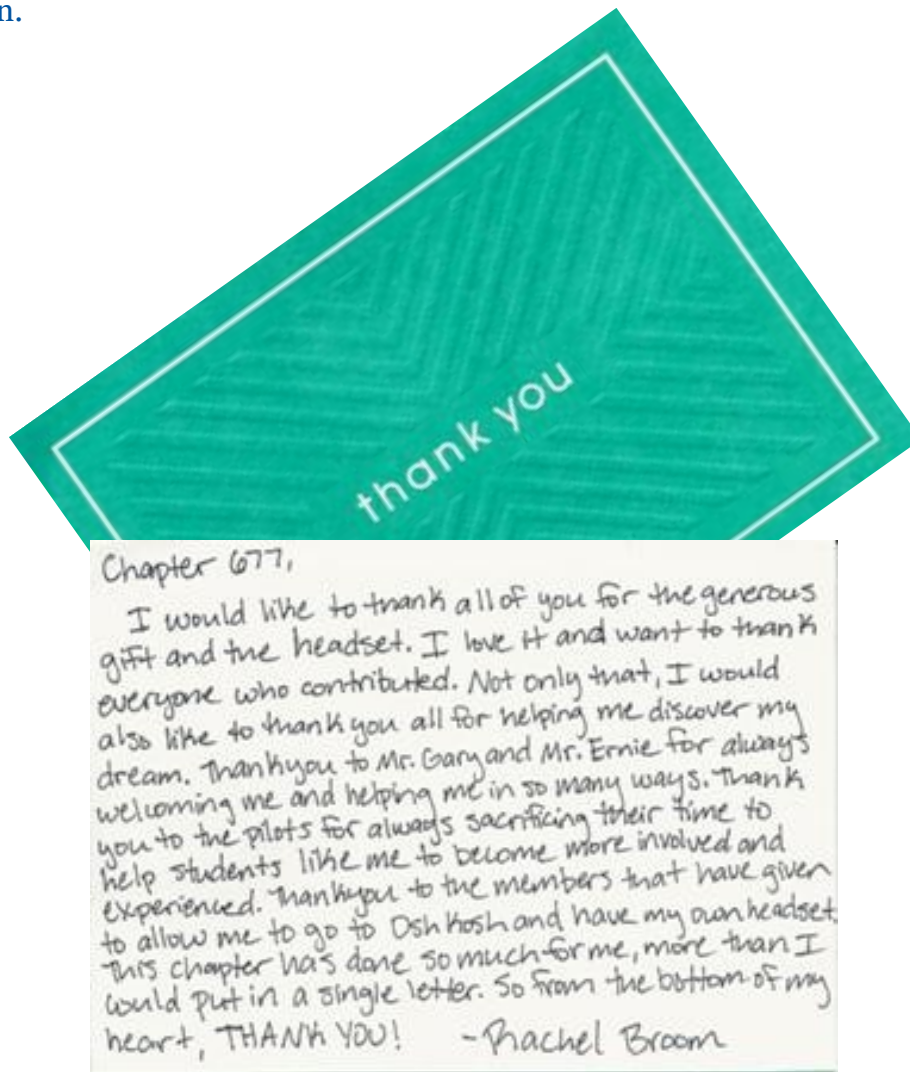 n.
thank you
Chapter 677,
I would like to thank all of you for the generous
gift and the headset. I love it and want to thank
everyone who contributed. Not only that, I would
also like to thank you all for helping me discover my
dream. Thankyou to Mr. Gary and Mr. Ernie for always
welcoming me and helping me in so many ways. Thank
you to the pilots for always sacrificing their time to
help students like me to become more involved and
experienced. Thankyou to the members that have given
to allow me to go to Oshkosh and have my own headset.
This chapter has done so much for me, more than I
would put in a single letter. So from the bottom of my
heart, THANK YOU! -Rachel Broom